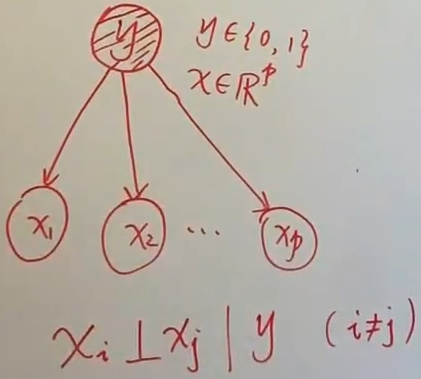 y
y∈{0,1}
x∈ℝᵖ
x₁ x₂ ... xₚ
xᵢ ⊥ xⱼ | y (i≠j)